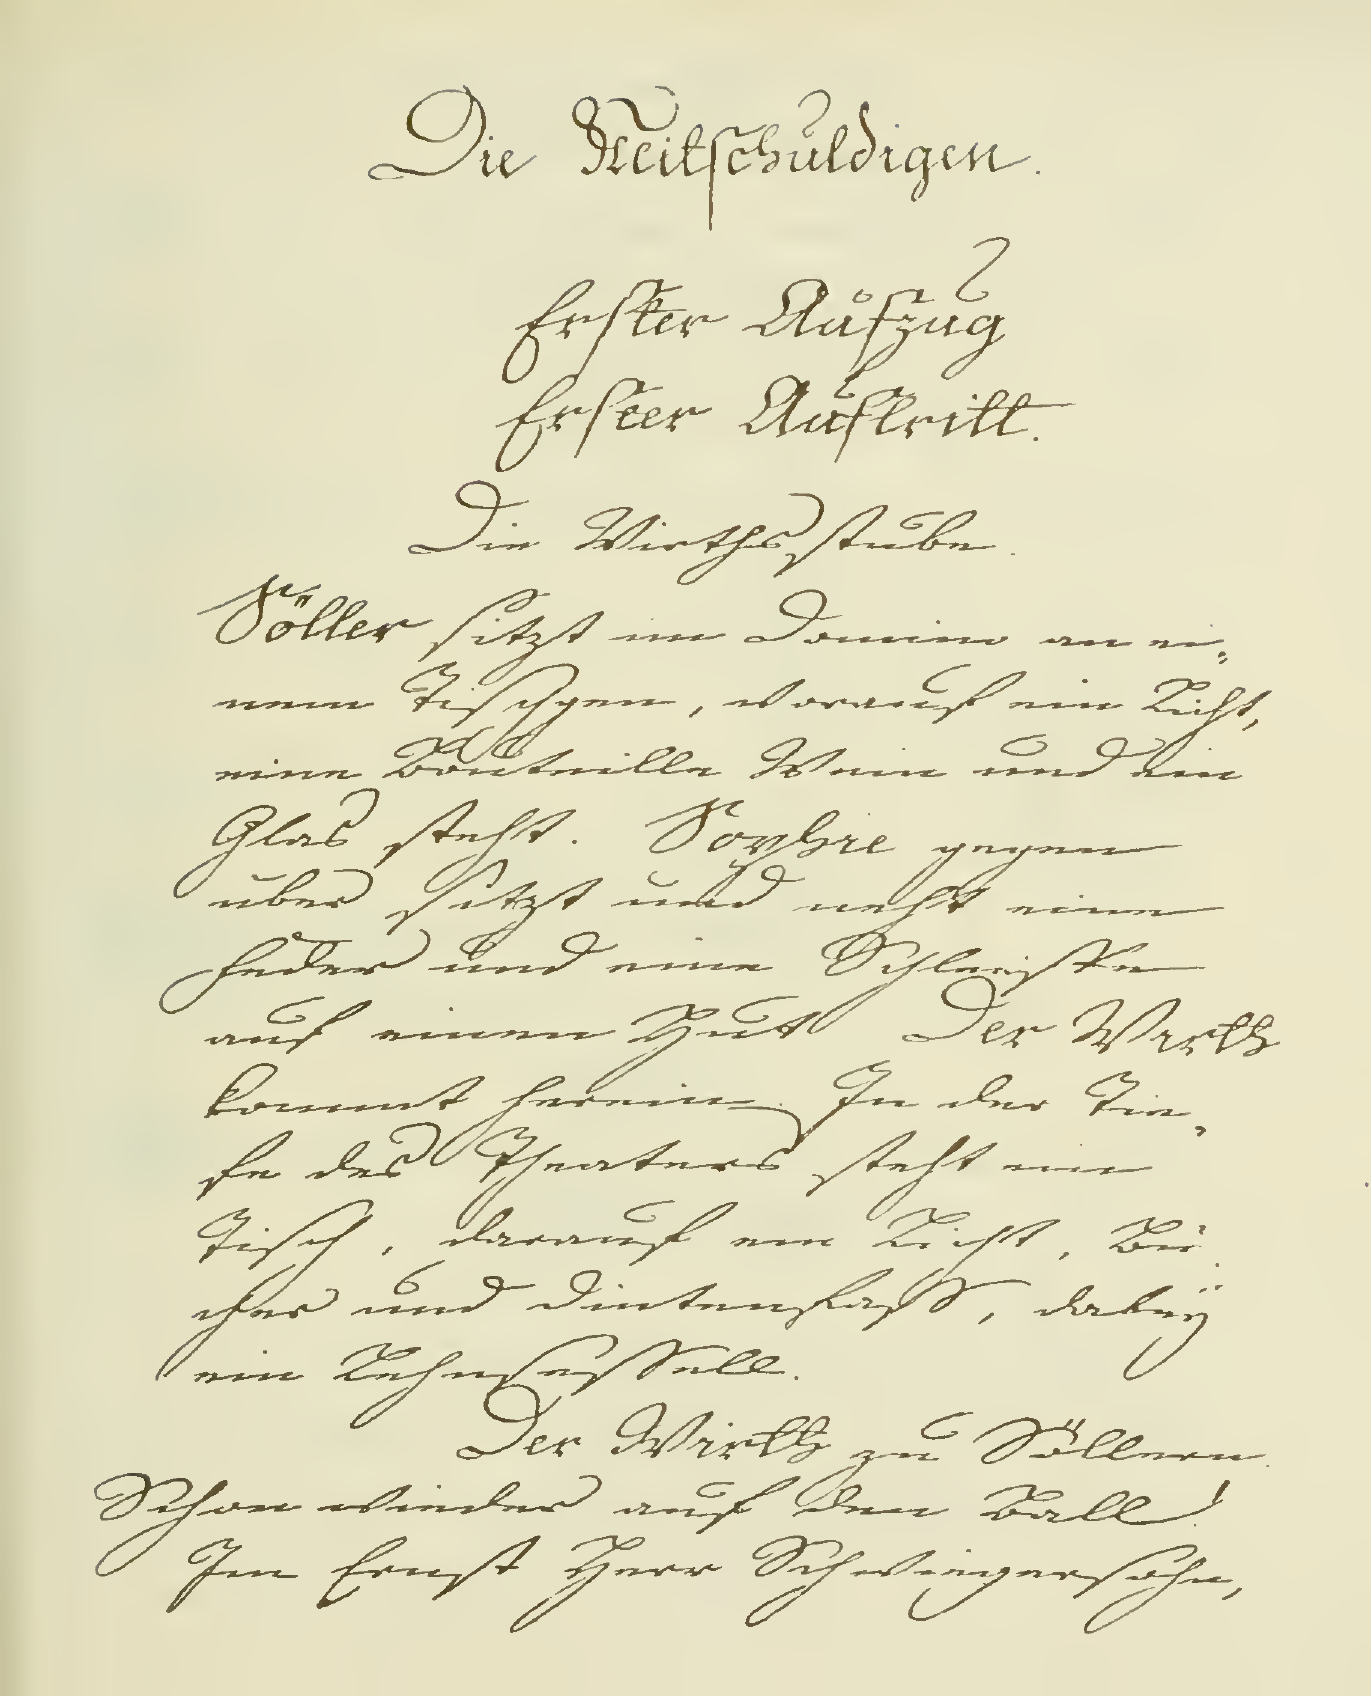 Die Mitschuldigen.
Erster Aufzug
Erster Auftritt.
Die Wirthsstube.
Söller sitzt im Domino an ei,
nem Tischgen, worauf ein Licht,
eine Bouteille Wein und ein
Glas steht. Sophie gegen
über sitzt und neht eine
Feder und eine Schleiffe
auf einen Hut. Der Wirth
kommt herein. In der Tie,
fe des Theaters steht ein
Tisch, darauf ein Licht, Bü
cher und Dintenfass, dabey
ein Lehnsessell.
Der Wirth zu Söllern.
Schon wieder auf den Ball!
Im Ernst Herr Schwiegersohn,